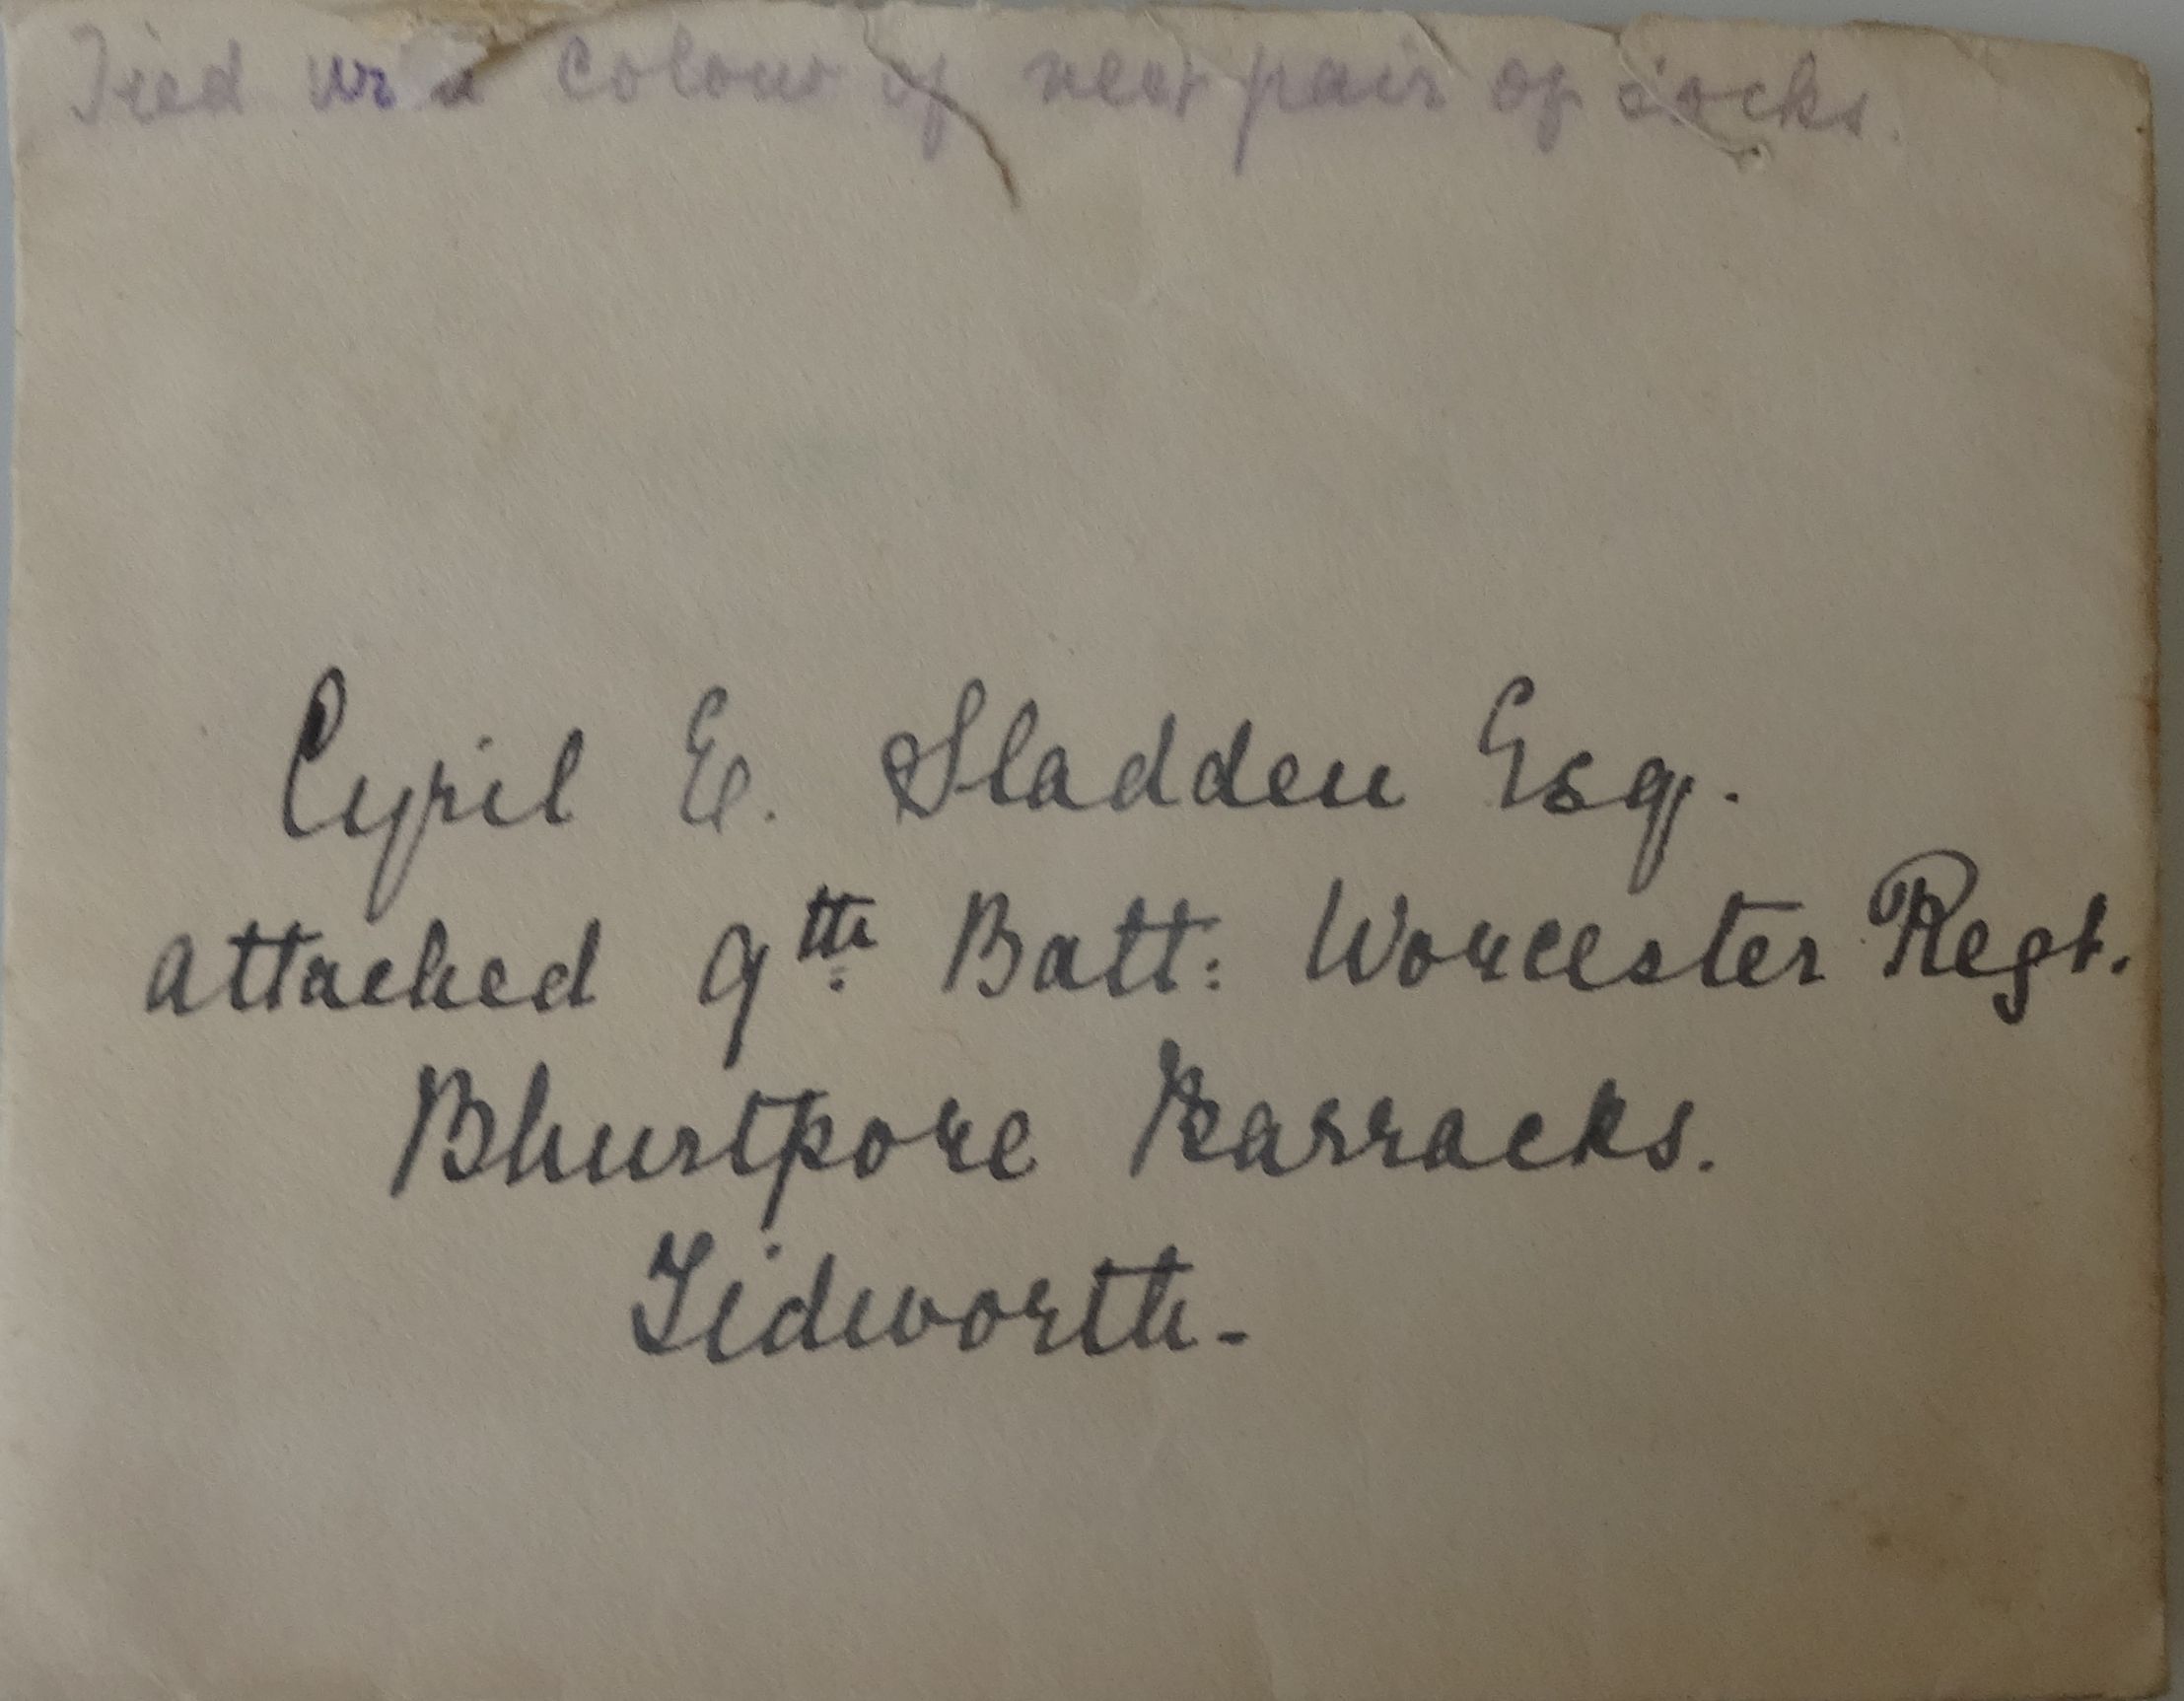 Tied colour of next pair of socks.
Cyril E. Sladden Esq.
attached 9th Batt: Worcester Regt.
Bhurtpore Barracks.
Tidworth-